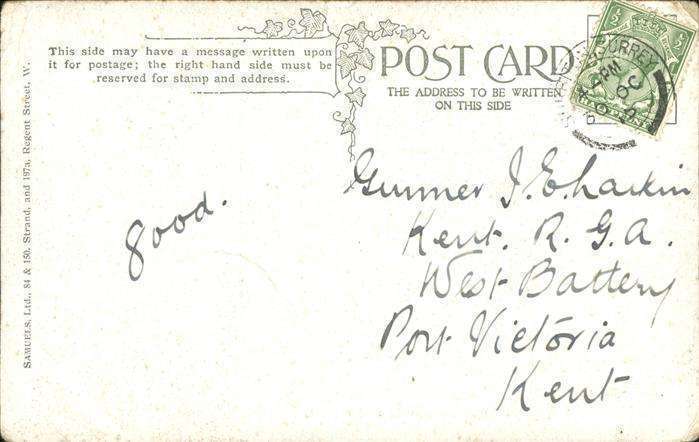 This side may have a message written upon
it for postage; the right hand side must be
reserved for stamp and address.
POST CARD
THE ADDRESS TO BE WRITTEN
ON THIS SIDE
SURREY
PM
OC
Gunner J. E. Larkin
Kent. R. G. A.
West Battery
Port Victoria
Kent
good.
SAMUELS, Ltd., 84 & 150, Strand, and 197a, Regent Street, W.